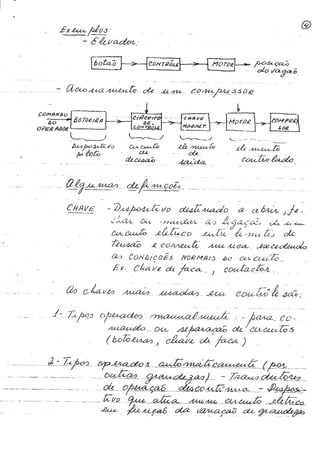 4
Exemplos:
- Elevador:
botão CONTRÔLE MOTOR posição
do vagão
- Acionamento de um compressor
COMANDO
DO
OPERADOR
BOTOEIRA CIRCUITO DE CONTRÔLE CHAVE MAGNET. MOTOR COMPRESSOR
Dispositivo circuito elemento elemento
piloto de de controlado
decisão saída
Algumas definições
CHAVE - Dispositivo destinado a abrir, fe-
char ou mudar as ligações de um
circuito elétrico entre limites de
tensão e corrente não excedendo
as CONDIÇÕES NORMAIS do circuito.
Ex. Chave de faca, contactor.
As chaves mais usadas em contrôle são:
1- Tipos operados manualmente - para co-
mando ou separação de circuitos
(botoeiras, chave de faca)
2- Tipos operados automáticamente (por
outras grandezas) - Transdutores
de operação descontínua - Disposi-
tivo que atua num circuito elétrico
em função da variação de grandezas